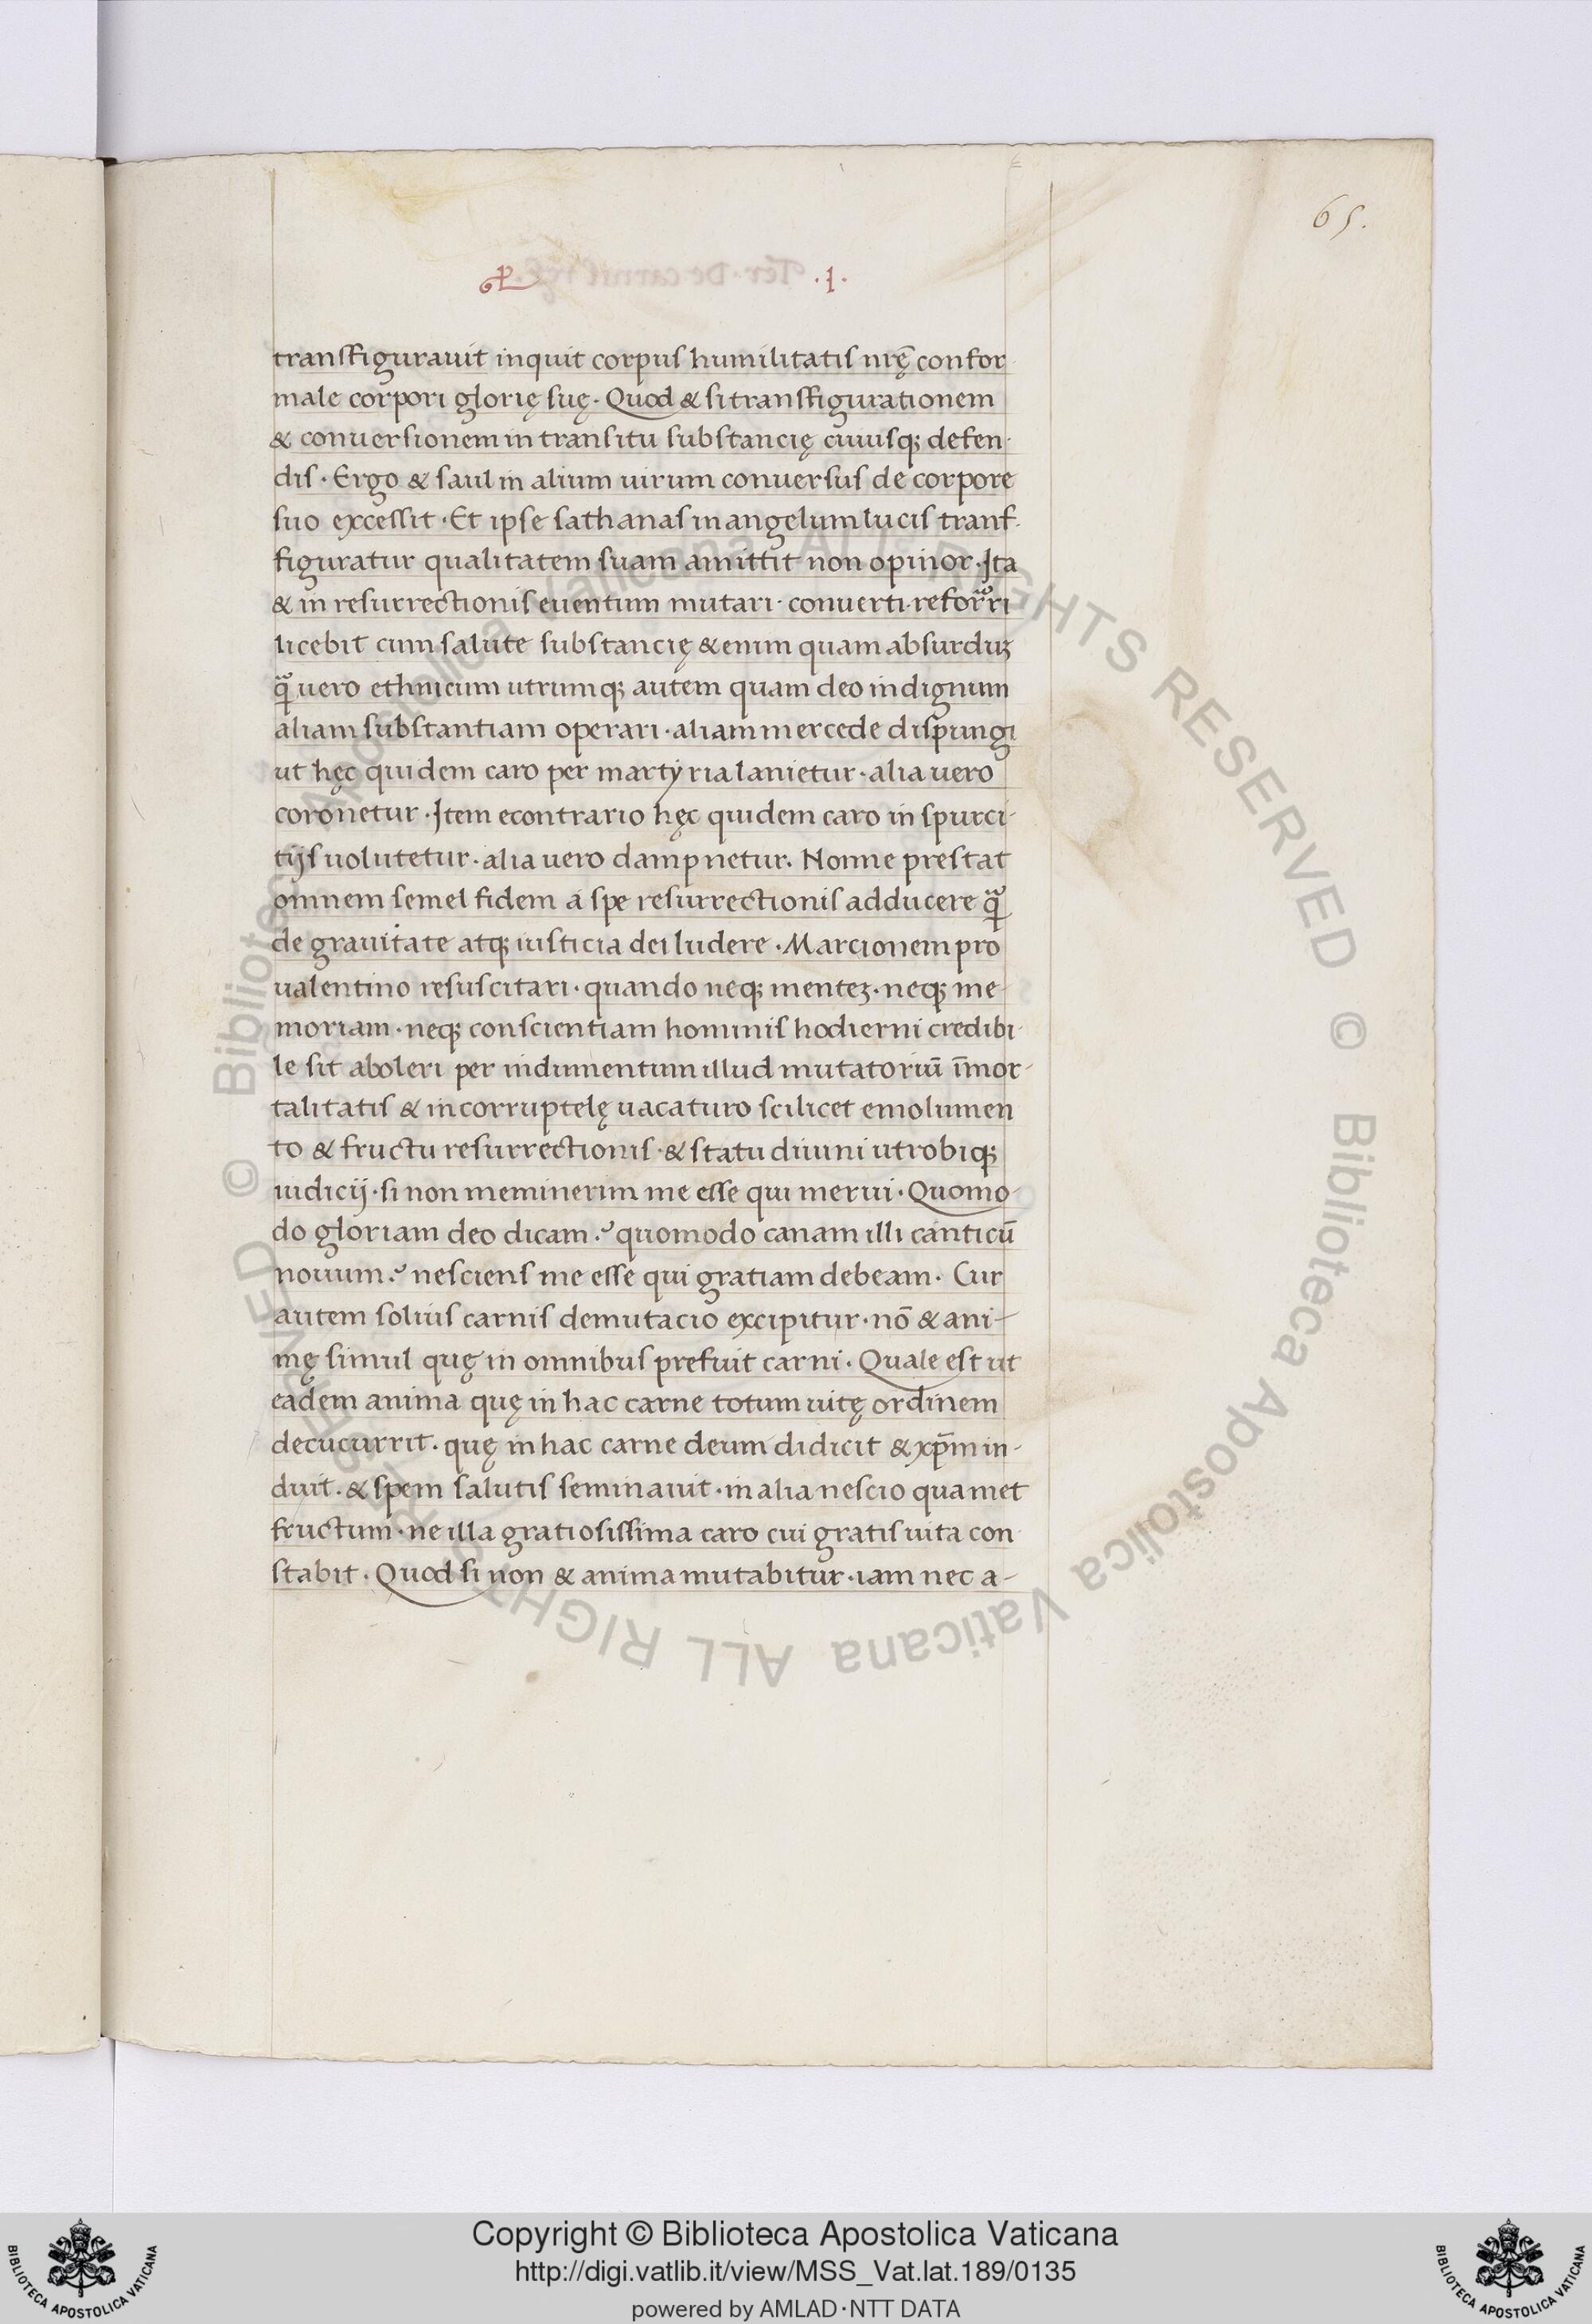 65.
.I.
transfigurauit inquit corpus humilitatis nrę̄ confor
male corpori glorię suę · Quod & si transfigurationem
& conuersionem in transitu substancię cuiusq; defen-
dis · Ergo & saul in alium uirum conuersus de corpore
suo excessit · Et ipse sathanas in angelum lucis trans-
figuratur qualitatem suam amittit non opinor · Ita
& in resurrectionis euentum mutari · conuerti · reforͣri
licebit cum salute substancię & enim quam absurduꝫ
qͣ uero ethnicum utrumq; autem quam deo indignum
aliam substantiam operari · aliam mercede dispungi
ut hęc quidem caro per martyria lanietur · alia uero
coronetur · Item econtrario hęc quidem caro in spurci-
tijs uolutetur · alia uero dampnetur. Nonne prestat
omnem semel fidem a spe resurrectionis adducere qͣ
de grauitate atq; iusticia dei ludere · Marcionem pro
ualentino resuscitari · quando neq; menteꝫ · neq; me-
moriam · neq; conscientiam hominis hodierni credibi-
le sit aboleri per indumentum illud mutatoriū īmor-
talitatis & incorruptelę uacaturo scilicet emolumen
to & fructu resurrectionis · & statu diuini utrobiq;
iudicij · si non meminerim me esse qui merui · Quomo-
do gloriam deo dicam ? quomodo canam illi canticū
nouum ? nesciens me esse qui gratiam debeam · Cur
autem solius carnis demutacio excipitur · nō & ani-
mę simul quę in omnibus prefuit carni · Quale est ut
eadem anima quę in hac carne totum uitę ordinem
decucurrit · quę in hac carne deum didicit & xp̄m in-
duit · & spem salutis seminauit · in alia nescio qua met
fructum · ne illa gratiosissima caro cui gratis uita con
stabit · Quod si non & anima mutabitur · iam nec a-
© Biblioteca Apostolica Vaticana ALL RIGHTS RESERVED © Biblioteca Apostolica Vaticana ALL RIGHTS RESERVED
Copyright © Biblioteca Apostolica Vaticana
http://digi.vatlib.it/view/MSS_Vat.lat.189/0135
powered by AMLAD·NTT DATA
BIBLIOTECA APOSTOLICA VATICANA
BIBLIOTECA APOSTOLICA VATICANA